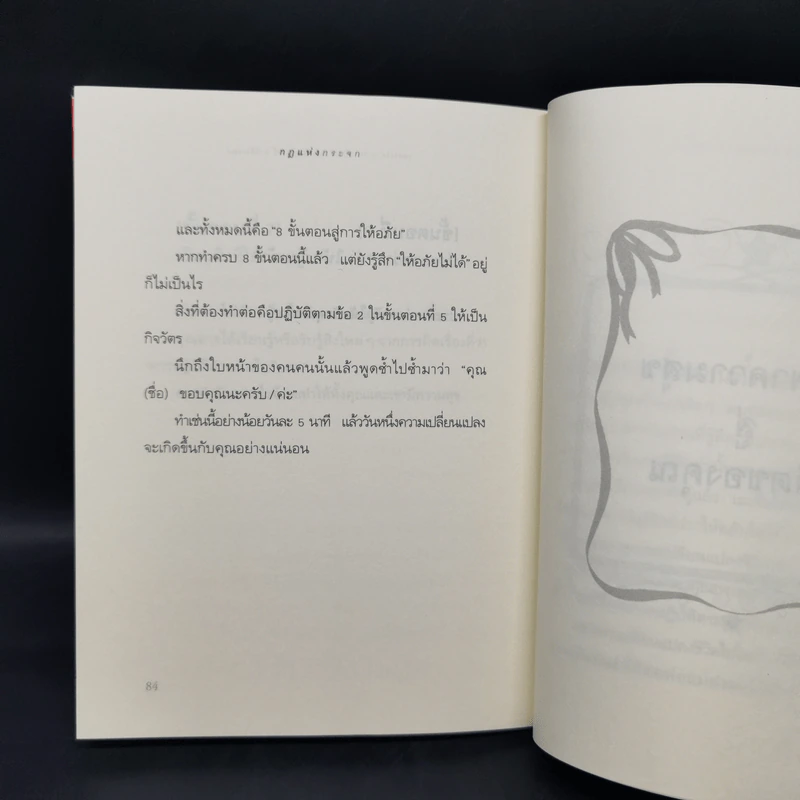 กฎแห่งกระจก
และทั้งหมดนี้คือ "8 ขั้นตอนสู่การให้อภัย"
หากทำครบ 8 ขั้นตอนนี้แล้ว แต่ยังรู้สึก "ให้อภัยไม่ได้" อยู่
ก็ไม่เป็นไร
สิ่งที่ต้องทำต่อคือปฏิบัติตามข้อ 2 ในขั้นตอนที่ 5 ให้เป็น
กิจวัตร
นึกถึงใบหน้าของคนคนนั้นแล้วพูดซ้ำไปซ้ำมาว่า "คุณ
(ชื่อ) ขอบคุณนะครับ / ค่ะ"
ทำเช่นนี้อย่างน้อยวันละ 5 นาที แล้ววันหนึ่งความเปลี่ยนแปลง
จะเกิดขึ้นกับคุณอย่างแน่นอน
84